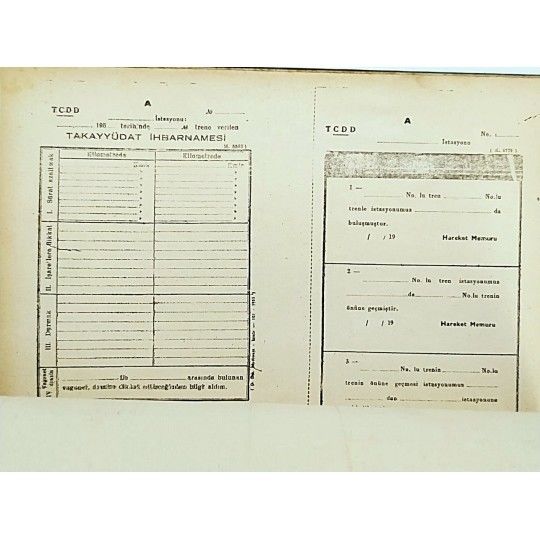 TCDD
A
№
İstasyonu:
198 tarih'nde № treno verilen
TAKAYYÜDAT İHBARNAMESİ
Kilometrede Kilometrede
I. Sürat azaltmak
II. İşare'lere dikkat
III. Durmak
IV
Vagonet
arasında bulunan
vagonet, drezine dikkat edileceğinden bilgi aldım.
TCDD
A
No. :
İstasyonu
1 —
No. lu tren No.lu
trenle istasyonunus da
buluşmuştur.
/ / 19 Hareket Memuru
2 —
No. lu tren istasyonunus
da No.lu trenin
önüne geçmiştir.
/ / 19 Hareket Memuru
3 —
No. lu trenin No.lu
trenin önüne geçmesi istasyonunus
dan istasyonuna